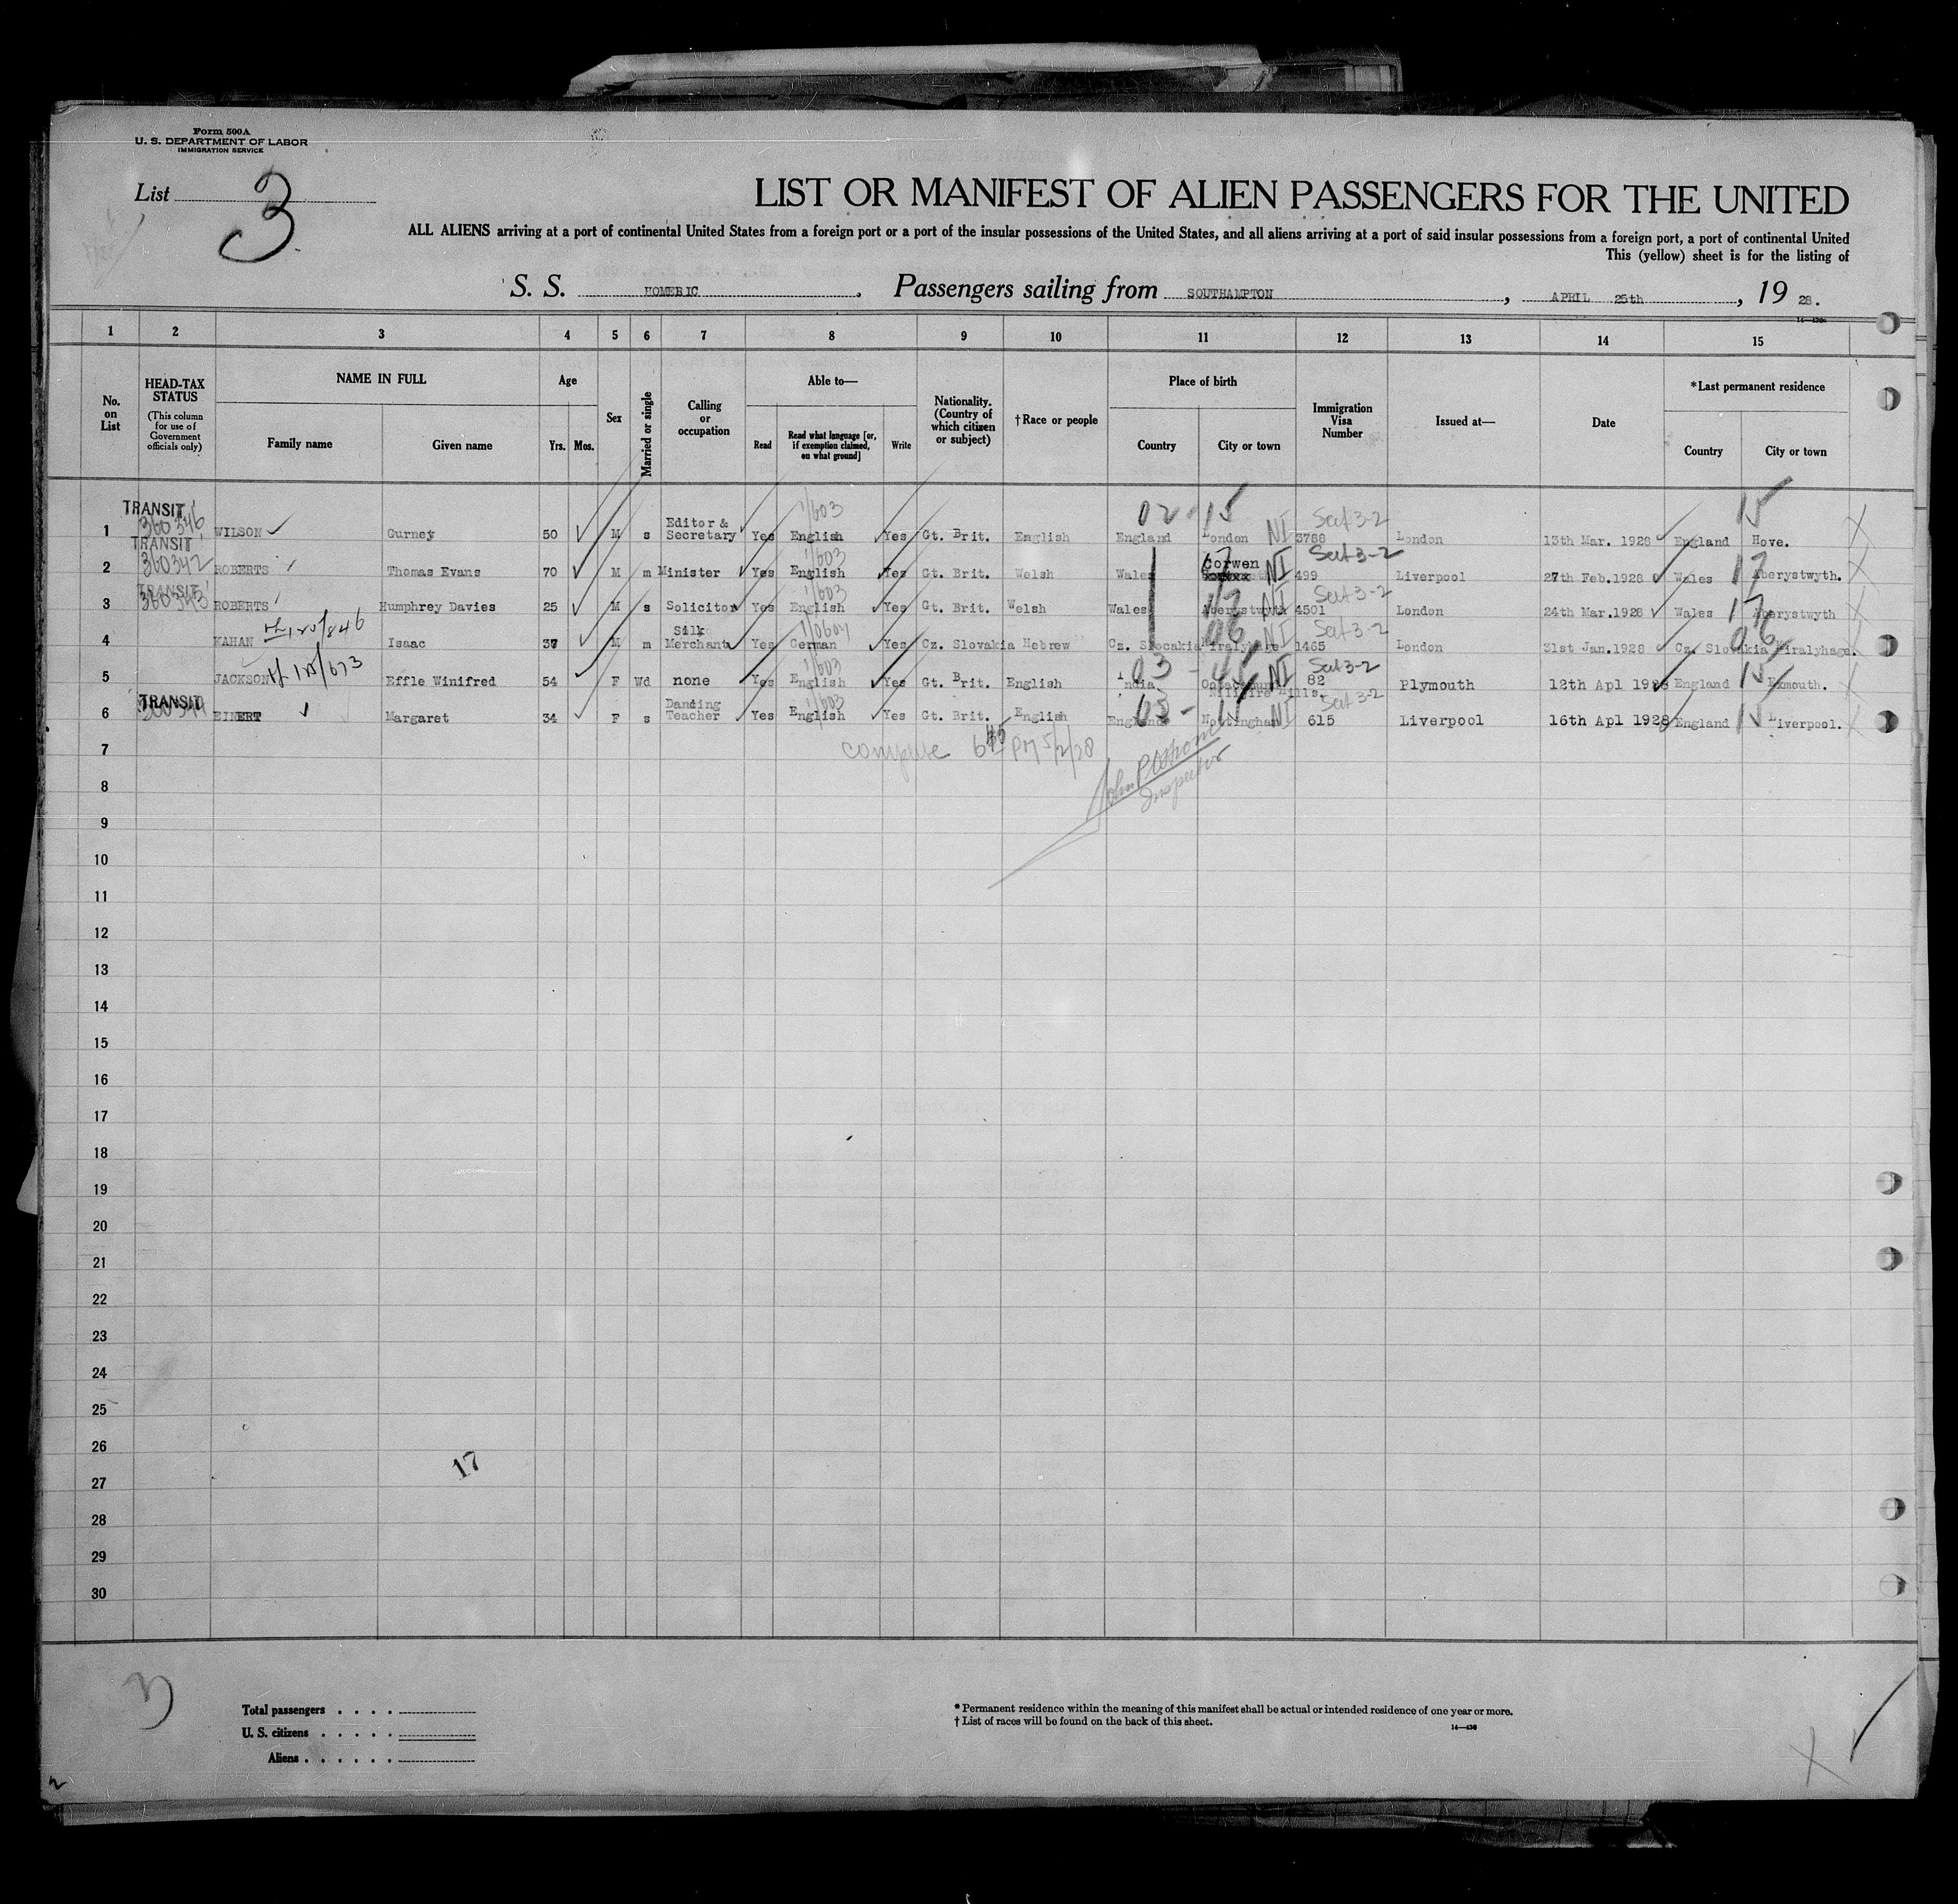 Form 500A
U. S. DEPARTMENT OF LABOR
IMMIGRATION SERVICE
List 3
LIST OR MANIFEST OF ALIEN PASSENGERS FOR THE UNITED
ALL ALIENS arriving at a port of continental United States from a foreign port or a port of the insular possessions of the United States, and all aliens arriving at a port of said insular possessions from a foreign port, a port of continental United
This (yellow) sheet is for the listing of
S. S. HOMERIC, Passengers sailing from SOUTHAMPTON, APRIL 25th, 19 28.
1 2 3 4 5 6 7 8 9 10 11 12 13 14 15
No. on List
HEAD-TAX STATUS (This column for use of Government officials only)
NAME IN FULL
Family name Given name
Age
Yrs. Mos.
Sex
Married or single
Calling or occupation
Able to—
Read Read what language [or, if exemption claimed, on what ground] Write
Nationality. (Country of which citizen or subject)
†Race or people
Place of birth
Country City or town
Immigration Visa Number
Issued at—
Date
*Last permanent residence
Country City or town
02 15 15
1 TRANSIT 360346 WILSON Gurney 50 M s Editor & Secretary Yes English 1/603 Yes Gt. Brit. English England London NI 3788 Sect 3-2 London 13th Mar. 1928 England Hove.
2 TRANSIT 360342 ROBERTS Thomas Evans 70 M m Minister Yes English 1/603 Yes Gt. Brit. Welsh Wales Corwen NI 499 Sect 3-2 Liverpool 27th Feb.1928 Wales 17 Aberystwyth.
3 TRANSIT 360343 ROBERTS Humphrey Davies 25 M s Solicitor Yes English 1/603 Yes Gt. Brit. Welsh Wales Aberystwyth 17 NI 4501 Sect 3-2 London 24th Mar.1928 Wales 17 Aberystwyth
4 KAHAN Isaac 37 M m Silk Merchant Yes German Yes Cz. Slovakia Hebrew Cz. Slocakia 06 NI 1465 Sect 3-2 London 31st Jan.1928 Cz. Slovakia 06 Kiralyhaga.
5 JACKSON Effie Winifred 54 F Wd none Yes English 1/603 Yes Gt. Brit. English India 03 - 45 Hills. NI 82 Sect 3-2 Plymouth 12th Apl 1928 England 15 Exmouth.
6 TRANSIT EINERT Margaret 34 F s Dancing Teacher Yes English 1/603 Yes Gt. Brit. English England Nottingham NI 615 Sect 3-2 Liverpool 16th Apl 1928 England 15 Liverpool.
7
complete 6 45 PM 5/2/28
Inspector
8
9
10
11
12
13
14
15
16
17
18
19
20
21
22
23
24
25
26
27
17
28
29
30
3
Total passengers
U. S. citizens
Aliens
* Permanent residence within the meaning of this manifest shall be actual or intended residence of one year or more.
† List of races will be found on the back of this sheet.
14—430